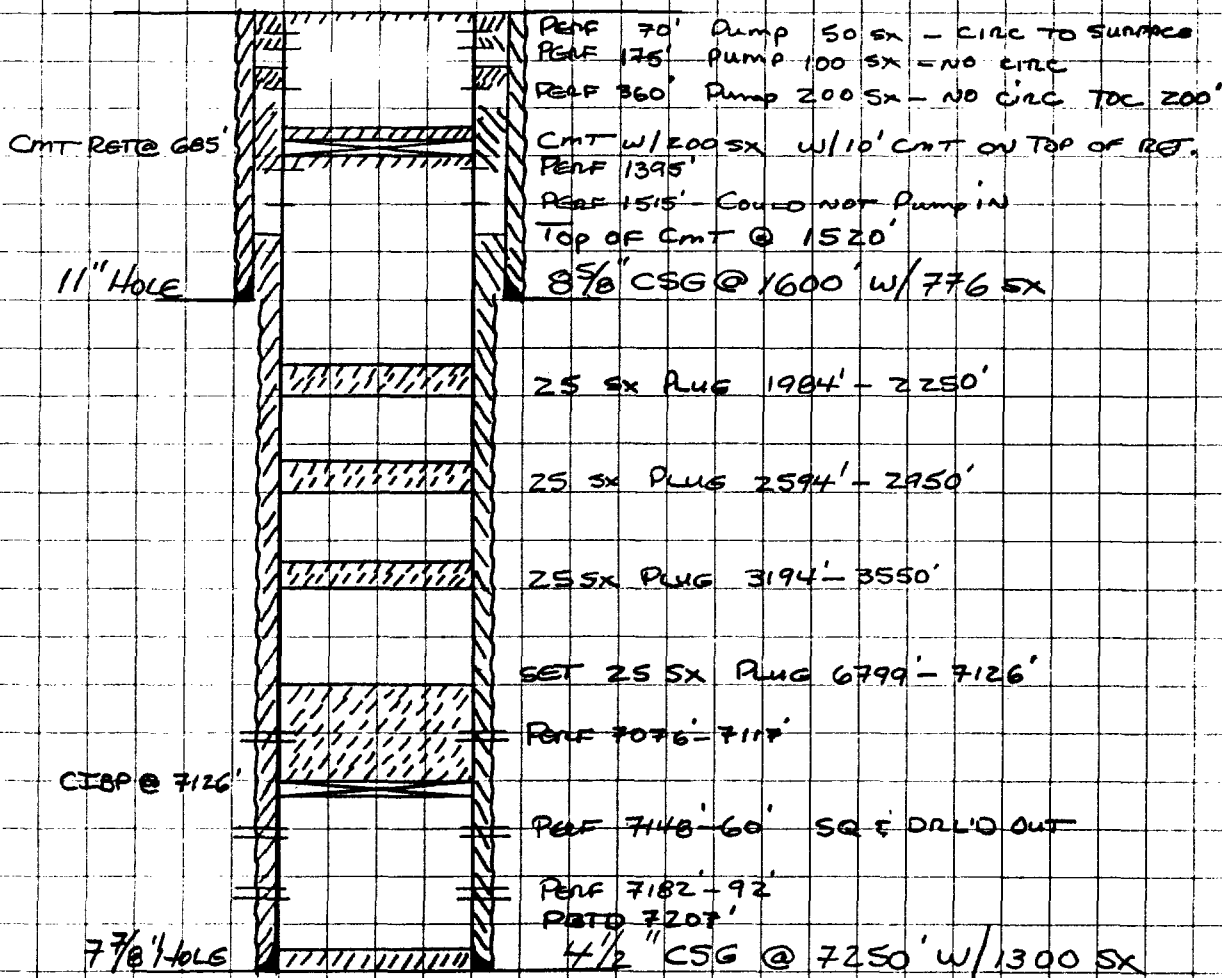 PERF 70' Pump 50 SX - CIRC TO SURFACE
PERF 175' Pump 100 SX - NO CIRC
PERF 360' Pump 200 SX - NO CIRC TOC 200'
CMT RET@ 685'
CMT W/200 SX W/10' CMT ON TOP OF RET.
PERF 1395'
PERF 1515' - COULD NOT PUMP IN
TOP OF CMT @ 1520'
11" HOLE
8 5/8" CSG @ 1600' W/776 SX
25 SX PLUG 1984' - 2250'
25 SX PLUG 2594' - 2950'
25 SX PLUG 3194' - 3550'
SET 25 SX PLUG 6799' - 7126'
PERF 7076' - 7117'
CIBP @ 7126'
PERF 7148' - 60' SQ & DRL'D OUT
PERF 7182' - 92'
PBTD 7207'
7 7/8" HOLE
4 1/2" CSG @ 7250' W/1300 SX